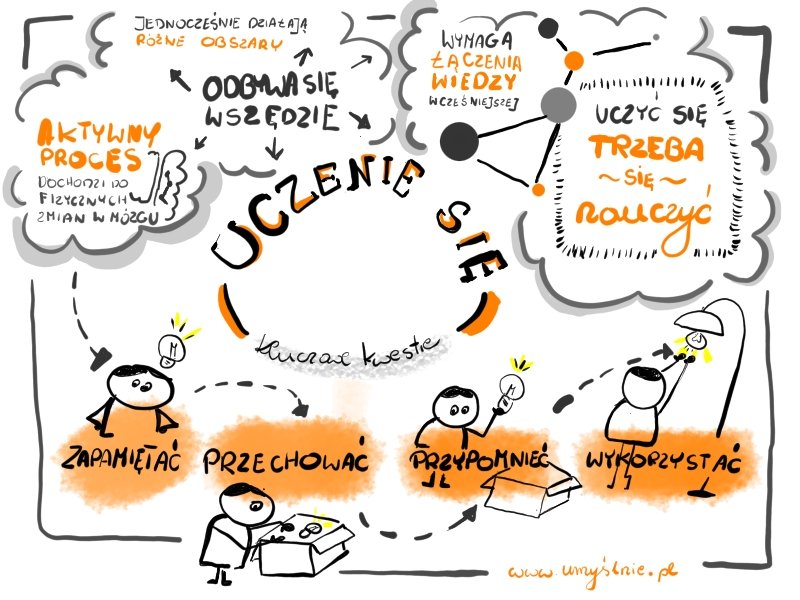 JEDNOCZEŚNIE DZIAŁAJĄ
RÓŻNE OBSZARY
ODBYWA SIĘ
WSZĘDZIE
WYMAGA
ŁĄCZENIA
WIEDZY
WCZEŚNIEJSZEJ
UCZYĆ SIĘ
TRZEBA
~SIĘ~
nauczyć
AKTYWNY
PROCES
DOCHODZI DO
FIZYCZNYCH
ZMIAN W MÓZGU
UCZENIE SIĘ
kluczowe kwestie
M
M
ZAPAMIĘTAĆ
PRZECHOWAĆ
PRZYPOMNIEĆ
WYKORZYSTAĆ
www.umyślnie.pl